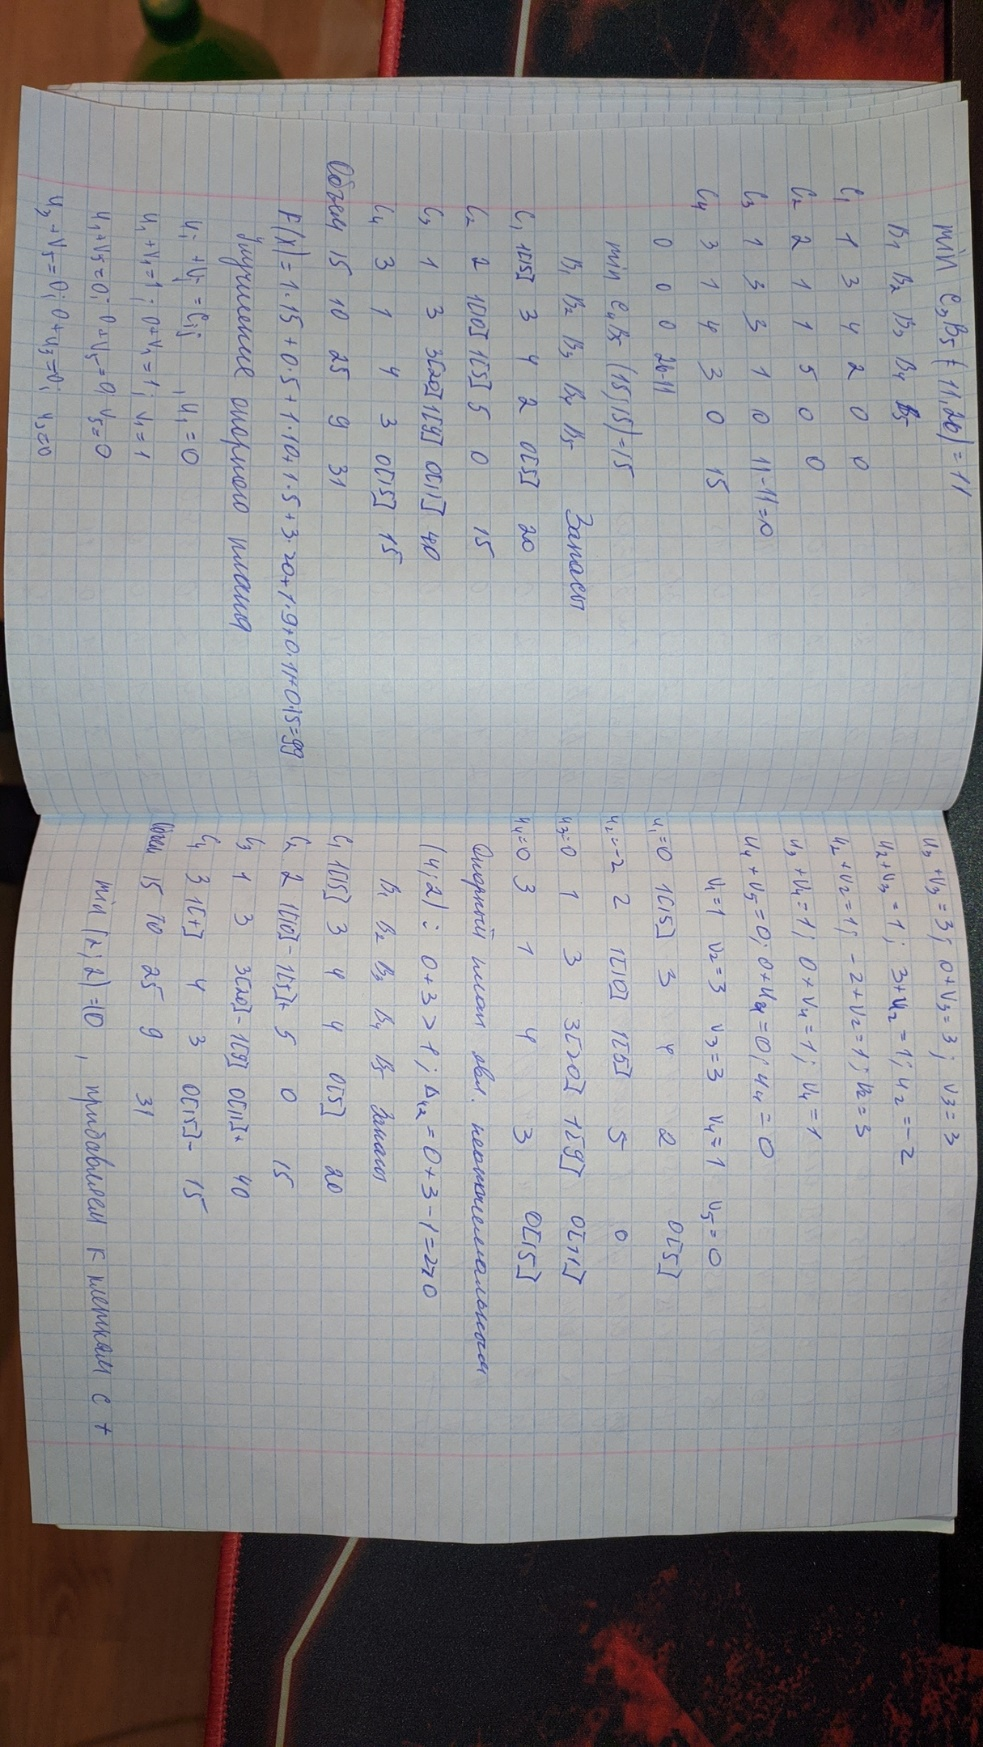 min C₃B₅ (11,26) = 11
B₁ B₂ B₃ B₄ B₅
C₁ 1 3 4 2 0 0
C₂ 2 1 1 5 0 0
C₃ 1 3 3 1 0 11-11=0
C₄ 3 1 4 3 0 15
0 0 0 26-11
min C₄B₅ (15,15)=15
B₁ B₂ B₃ B₄ B₅ Запасы
C₁ 1[15] 3 4 2 0[5] 20
C₂ 2 1[10] 1[5] 5 0 15
C₃ 1 3 3[20] 1[9] 0[11] 40
C₄ 3 1 4 3 0[15] 15
15 10 25 9 31
F(x) = 1·15 + 0·5 + 1·10 + 1·5 + 3·20 + 1·9 + 0·11 + 0·15 = 99
Улучшение опорного плана
uᵢ + vⱼ = cᵢⱼ , u₁ = 0
u₁ + v₁ = 1; 0 + v₁ = 1; v₁ = 1
u₁ + v₅ = 0; 0 + v₅ = 0; v₅ = 0
u₃ + v₅ = 0; 0 + u₃ = 0; u₃ = 0
u₃ + v₃ = 3; 0 + v₃ = 3; v₃ = 3
u₂ + v₃ = 1; 3 + u₂ = 1; u₂ = -2
u₂ + v₂ = 1; -2 + v₂ = 1; v₂ = 3
u₃ + v₄ = 1; 0 + v₄ = 1; v₄ = 1
u₄ + v₅ = 0; 0 + u₄ = 0; u₄ = 0
v₁=1 v₂=3 v₃=3 v₄=1 v₅=0
u₁=0 1[15] 3 4 2 0[5]
u₂=-2 2 1[10] 1[5] 5 0
u₃=0 1 3 3[20] 1[9] 0[11]
u₄=0 3 1 4 3 0[15]
Опорный план явл. неоптимальным
(4;2): 0+3>1; Δ₄₂ = 0+3-1=2>0
B₁ B₂ B₃ B₄ B₅ Запасы
C₁ 1[15] 3 4 4 0[5] 20
C₂ 2 1[10]- 1[5]+ 5 0 15
C₃ 1 3 3[20]- 1[9] 0[11]+ 40
C₄ 3 1[+] 4 3 0[15]- 15
15 10 25 9 31
min (2;2)=10, прибавляем к клеткам с +